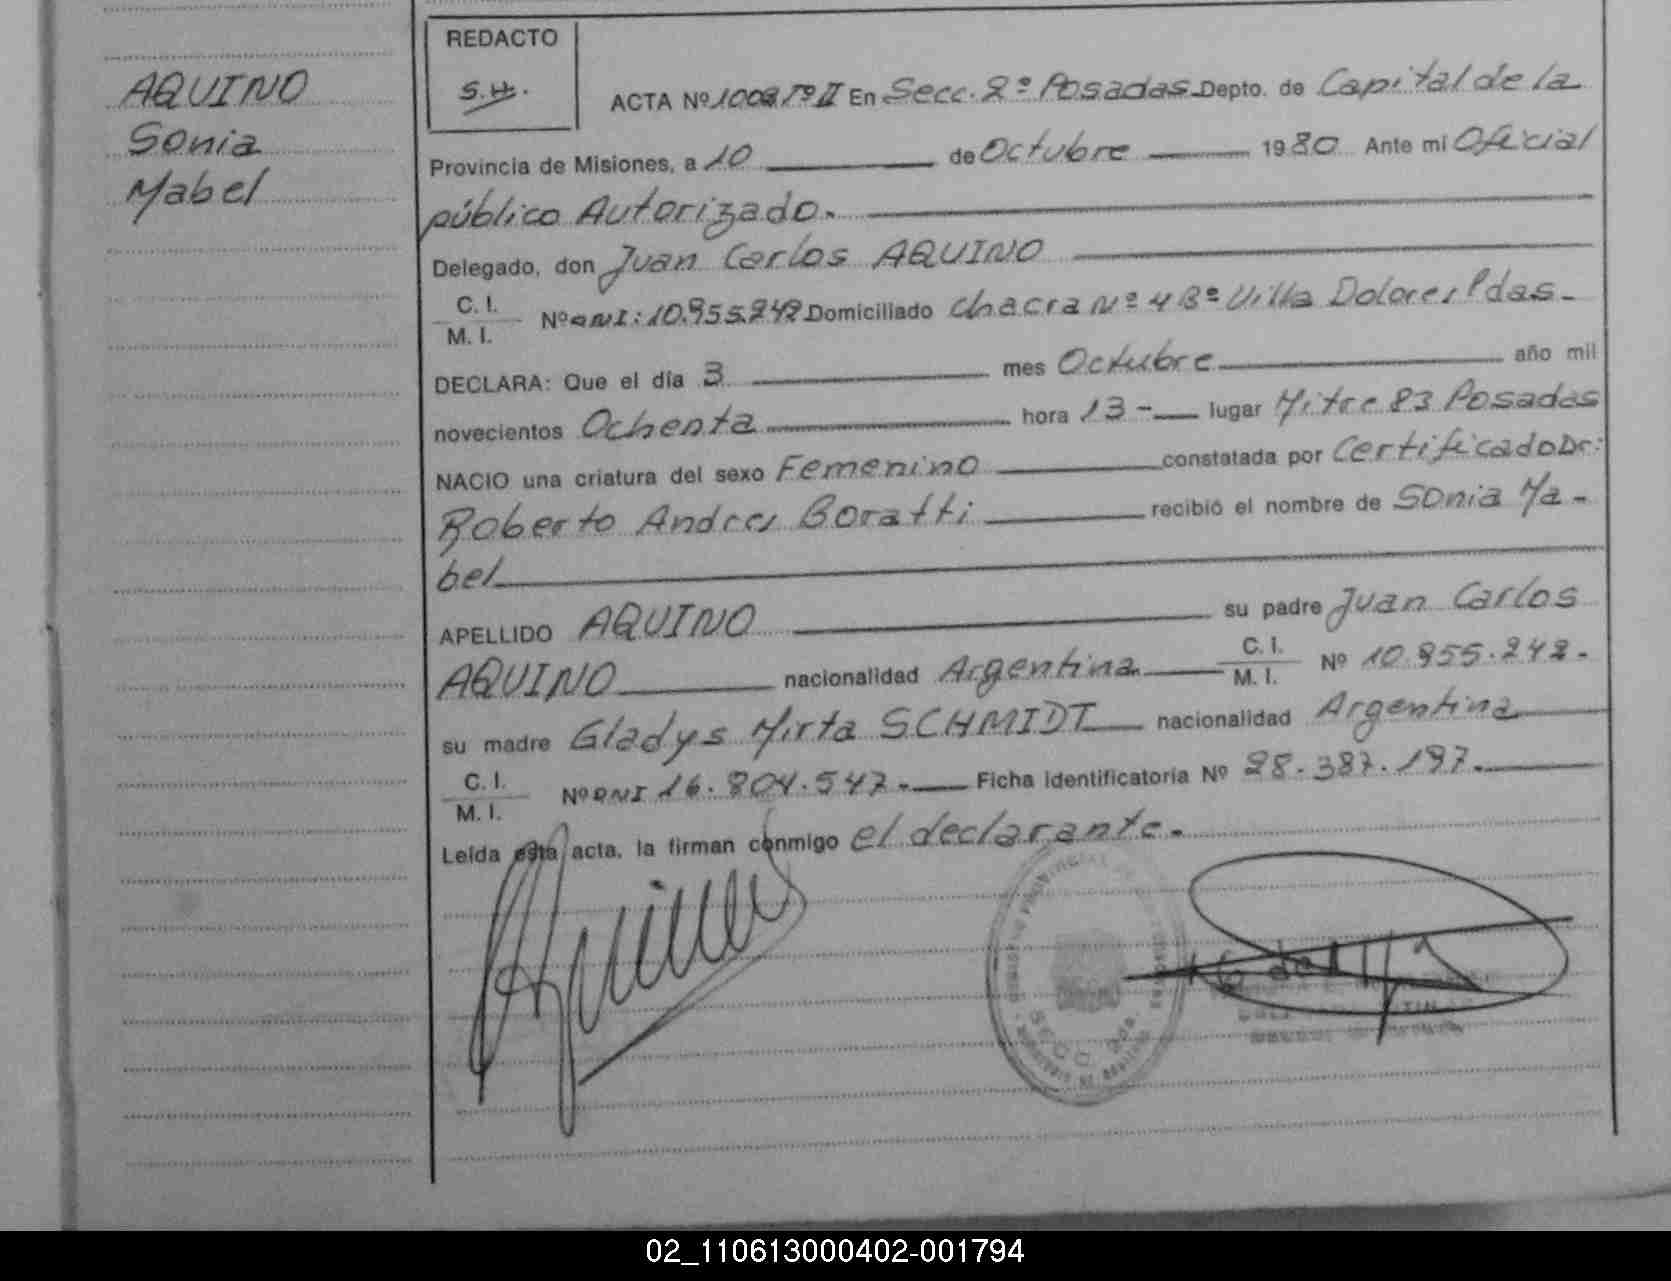 REDACTO
S.H.
AQUINO
Sonia
Mabel
ACTA Nº 1008 Tº II En Secc. 2º Posadas Depto. de Capital de la
Provincia de Misiones, a 10 de Octubre 1980 Ante mi Oficial
público Autorizado.
Delegado, don Juan Carlos AQUINO
C. I.
M. I. Nº DNI: 10.955.242 Domiciliado Chacra Nº 4 Bº Villa Dolores Pdas.
DECLARA: Que el día 3 mes Octubre año mil
novecientos Ochenta hora 13 - lugar Mitre 83 Posadas
NACIO una criatura del sexo Femenino constatada por Certificado Dr:
Roberto Andres Boratti recibió el nombre de Sonia Ma-
bel
APELLIDO AQUINO su padre Juan Carlos
AQUINO nacionalidad Argentina C. I. M. I. Nº 10.955.242.
su madre Gladys Mirta SCHMIDT nacionalidad Argentina
C. I.
M. I. Nº DNI 16.804.547. Ficha Identificatoria Nº 28.387.197.
Leída esta acta, la firman conmigo el declarante.
02_110613000402-001794